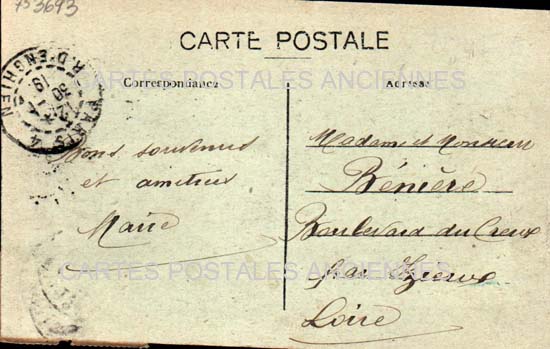 753693
CARTE POSTALE
CARTES POSTALES ANCIENNES
Correspondance
Adresse
PARIS
R. D'ENGHIEN
Bons souvenirs
et amitiés
Marie
Madame et Monsieur
Bénière
Boulevard du Creux
par
Loire
CARTES POSTALES ANCIENNES